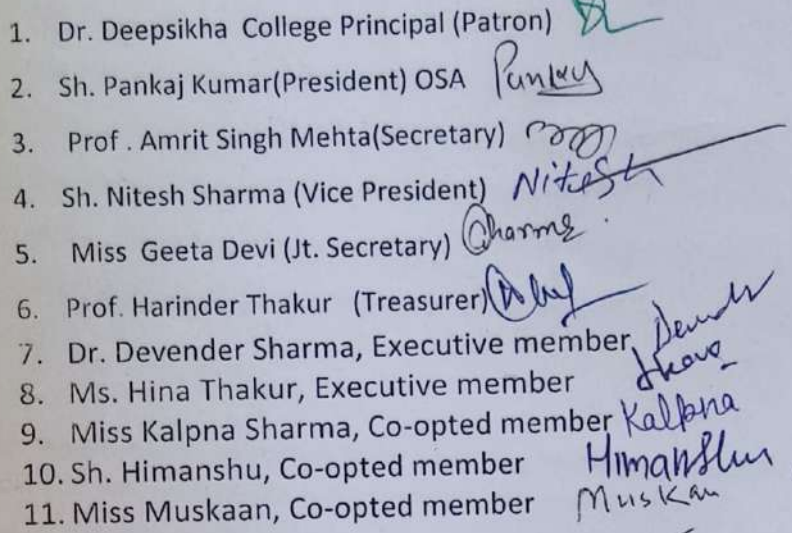 1. Dr. Deepsikha College Principal (Patron)
2. Sh. Pankaj Kumar(President) OSA Pankaj
3. Prof . Amrit Singh Mehta(Secretary)
4. Sh. Nitesh Sharma (Vice President) Nitesh
5. Miss Geeta Devi (Jt. Secretary)
6. Prof. Harinder Thakur (Treasurer)
7. Dr. Devender Sharma, Executive member
8. Ms. Hina Thakur, Executive member
9. Miss Kalpna Sharma, Co-opted member Kalpna
10. Sh. Himanshu, Co-opted member Himanshu
11. Miss Muskaan, Co-opted member Muskan